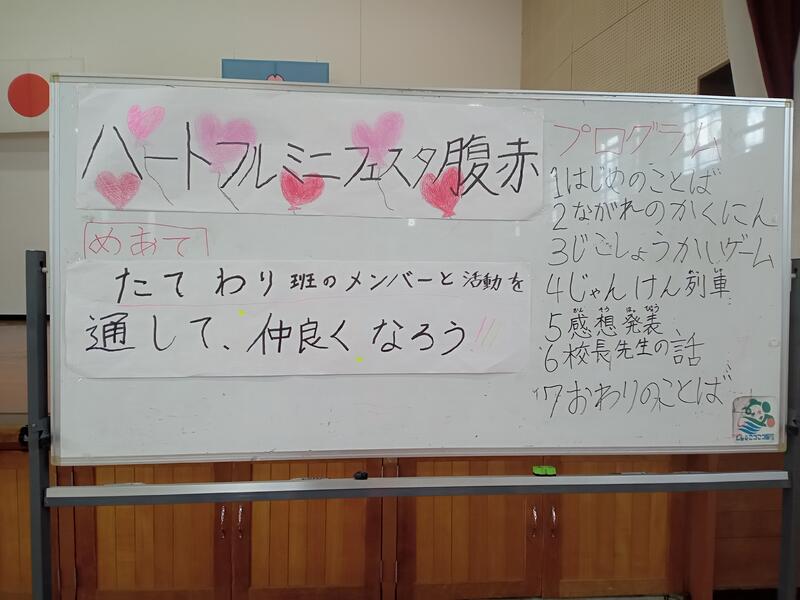 ハートフルミニフェスタ腹赤
めあて
たてわり班のメンバーと活動を
通して、仲良くなろう!!!
プログラム
1はじめのことば
2ながれのかくにん
3じこしょうかいゲーム
4じゃんけん列車
5感想発表
6校長先生の話
7おわりのことば